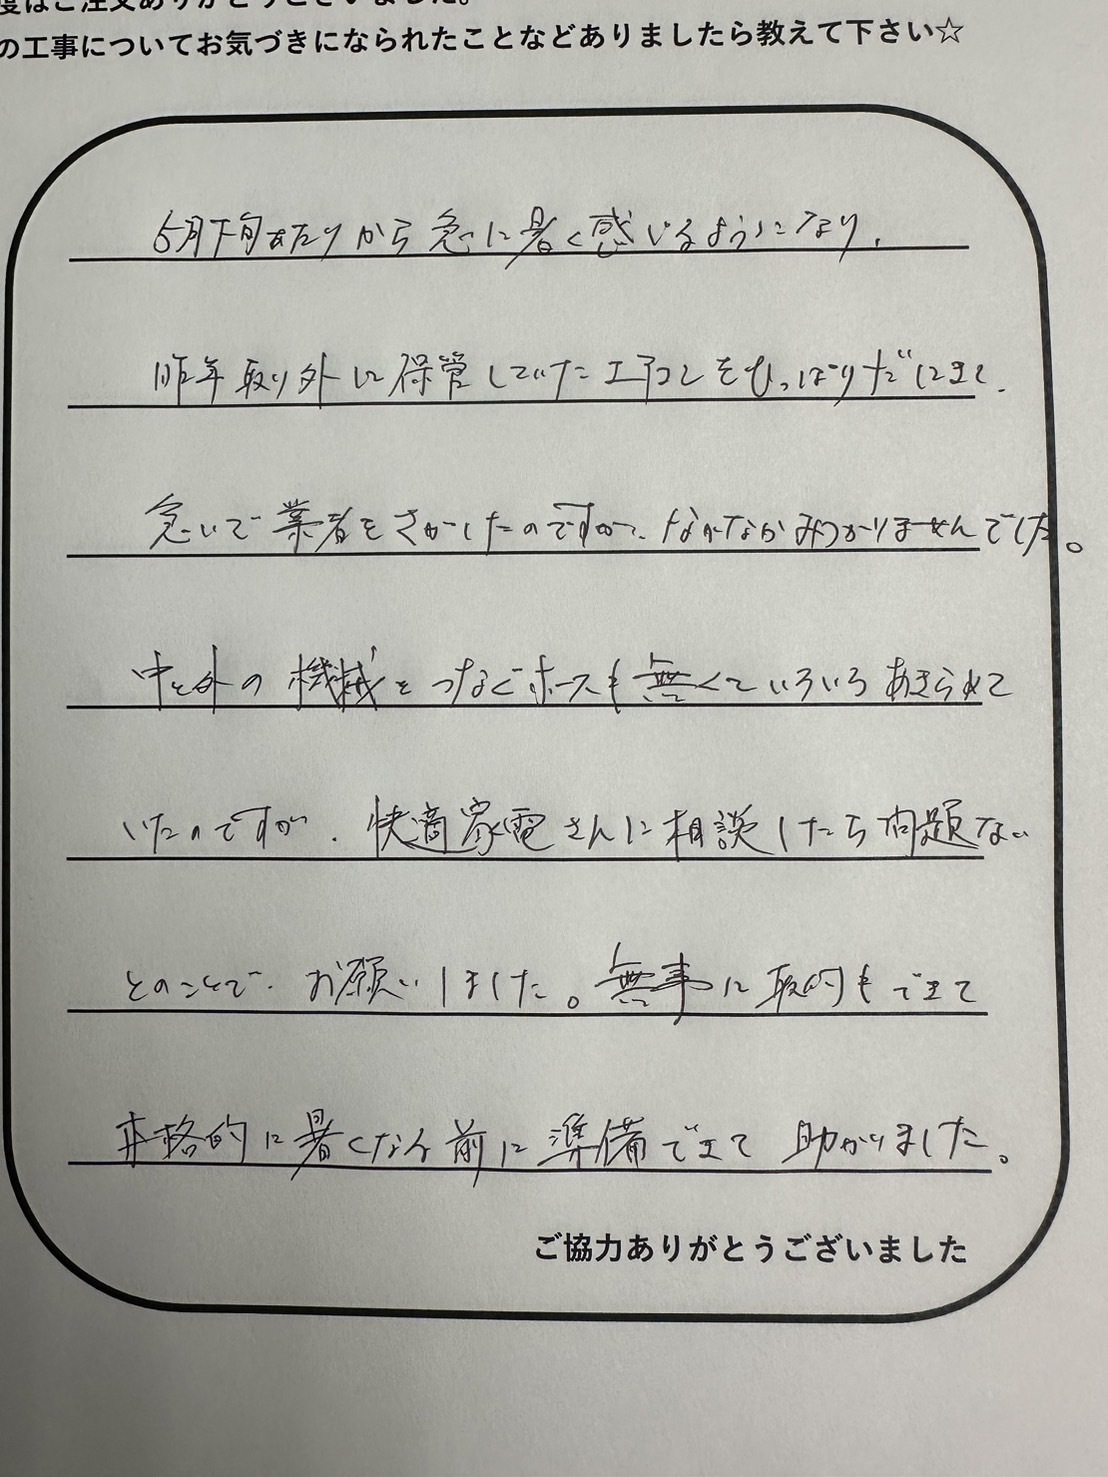 度はご注文ありがとうございました。
の工事についてお気づきになられたことなどありましたら教えて下さい☆
5月下旬あたりから急に暑く感じるようになり、
昨年取り外し保管していたエアコンをひっぱりだしまし
急いで業者をさがしたのですが、なかなかみつかりませんでした。
中と外の機械をつなぐホースも無くていろいろあきらめて
いたのですが、快適家電さんに相談したら問題ない
とのことで、お願いしました。無事に取付もできて
本格的に暑くなる前に準備できて助かりました。
ご協力ありがとうございました